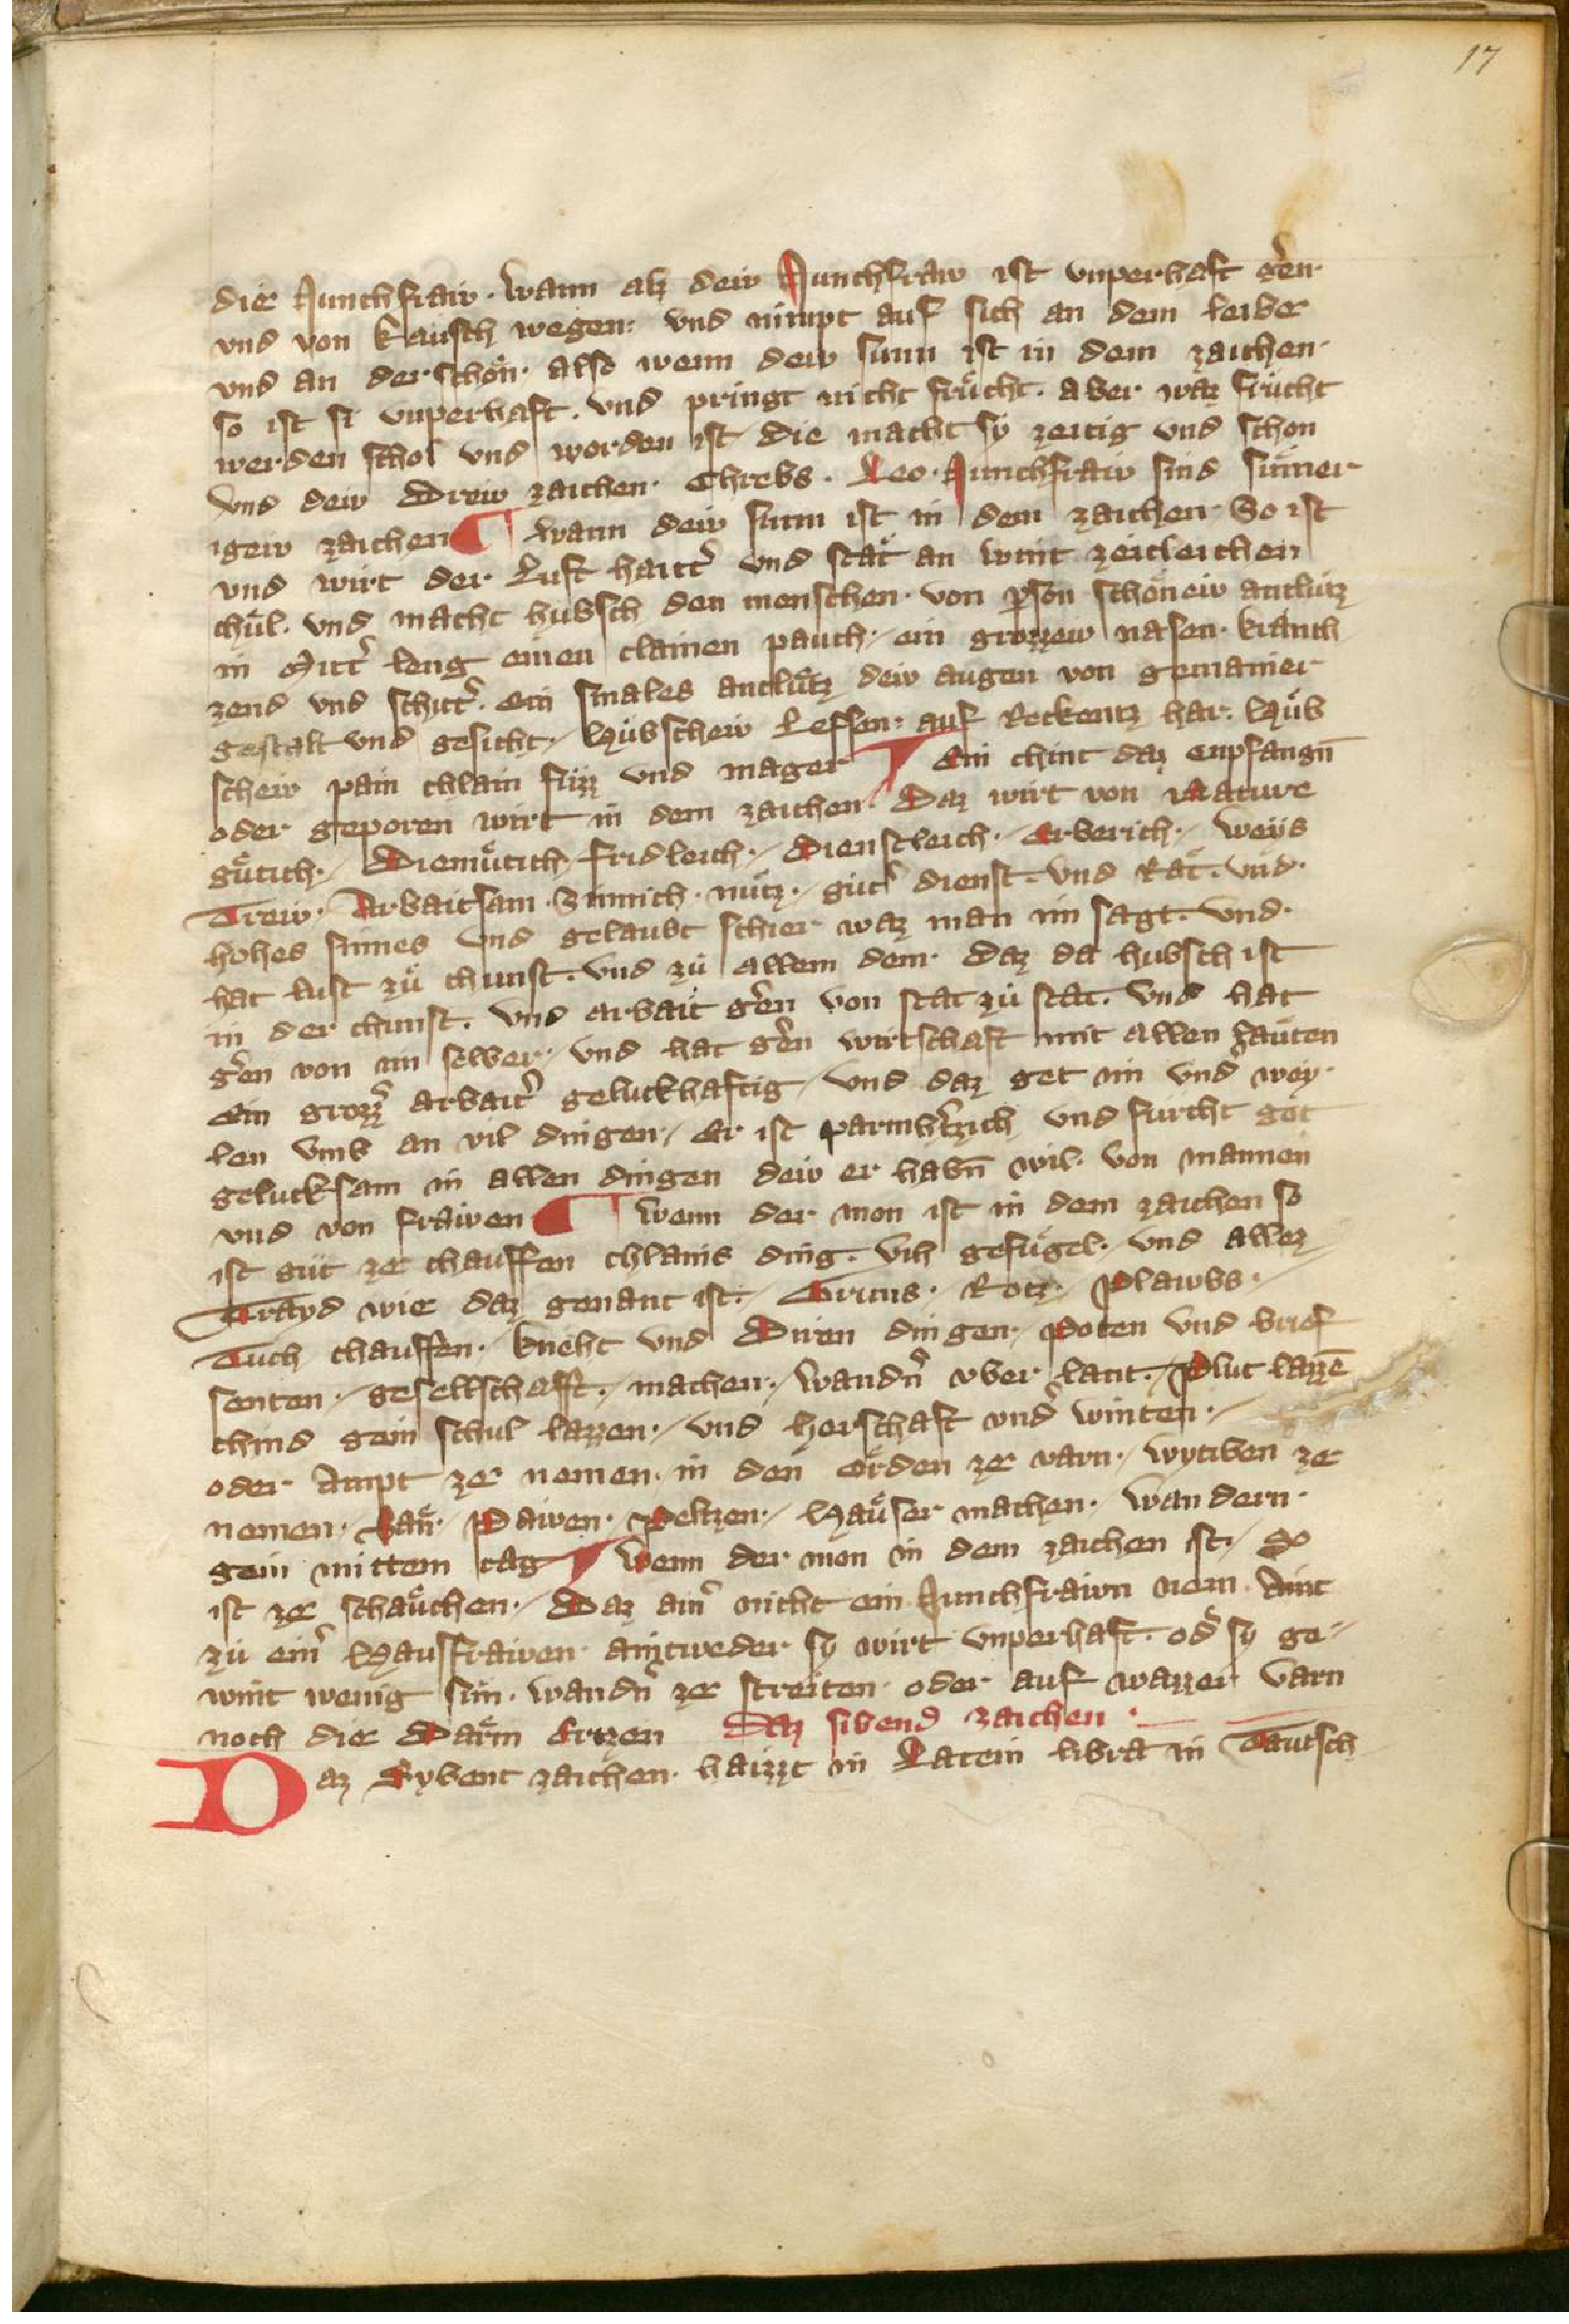 17
die Junchfraw · Wann alz dew Junchfraw ist vnperhaft gern
vnd von kaüsch wegen · vnd nimpt auf sich an dem leiber
vnd an der schön · also wenn dew sunn ist in dem zaichen ·
so ist si vnperhaft · vnd pringt nicht frücht · aber waz frücht
werden schol vnd worden ist die macht sÿ zeitig vnd schon
vnd dew Drew zaichen · Chrebs · Leo · Junchfraw sind sumer
igew zaichen ¶ Wann dew sunn ist in dem zaichen · So ist
vnd wirt der Luft haitt̉ vnd stät an wint zeitleichen
chül · vnd macht hubsch den menschen · von ꝑson schönew antlütz
in Mitt̉ leng einen clainen pauch · ein grozzew nasen · kranch
zend vnd schitt̉ · ein smales antlütz dew augen von gemainer
gestalt vnd gesicht · Hübschew Leffsen · auf Reckentz har · Hüb
schew pain chlain füzz vnd mager ¶ Ein chint daz enpfangn̄
oder geporen wirt in dem zaichen · Daz wirt von Nature
gütich · Diemütich · fridleich · Dienstleich · Erberich · Weÿs
Trew · Arbaitsam · Sinnich · nütz · güt̉ dienst · vnd Rät · vnd ·
hohes sinnes vnd gelaubt schier waz man im sagt · Vnd ·
hat lust zü chunst · vnd zü allem dem · Daz da hubsch ist
in der chunst · vnd arbait gern von stat zü stat · Vnd hat
gern von im selber · vnd hat gern wirtschaft mit allen läuten
Ein grozz̉ arbait̉ geluckhaftig · vnd daz get im vnd̉ wey ·
len vmb an vil dingen · Er ist parmhertzich vnd fürcht got
gelucksam in allen dingen dew er habn̄ wil · von mannen
vnd von frawen ¶ Wenn der mon ist in dem zaichen so
ist güt ze chauffen chlains ding · Vih gefügel · vnd allez
Trayd wie daz genant ist · Grüns · Rotz · Plawbs ·
Tüch chauffen · kneht vnd Diren dingen · Poten vnd brief
senten · gesellschafft · machen · Wandn̉ vber lant · Plut lazzē
chind gein schul lazzen · vnd herschaft vnd̉ winten ·
oder Ampt ze nemen · in den örden ze varn · Wytiben ze
nemen · Paü · Pawen · Peltzen · Haüser machen · Wandern ·
gein mittem tag ¶ Wenn der mon in dem zaichen ist · So
ist ze schaüchen · Daz ain̉ nicht ein Junchfrawn nem Aint
zü ein̉ Hausfrawen · aintweder sy wirt vnperhaft · od̉ sy ge
wint wenig sün · Wandn̉ ze streiten · oder auf wazzer varn
noch die Därm Ertzen Daz sibend zaichen ·
Daz Sybent zaichen · haizzt in Latein libra in Täutsch